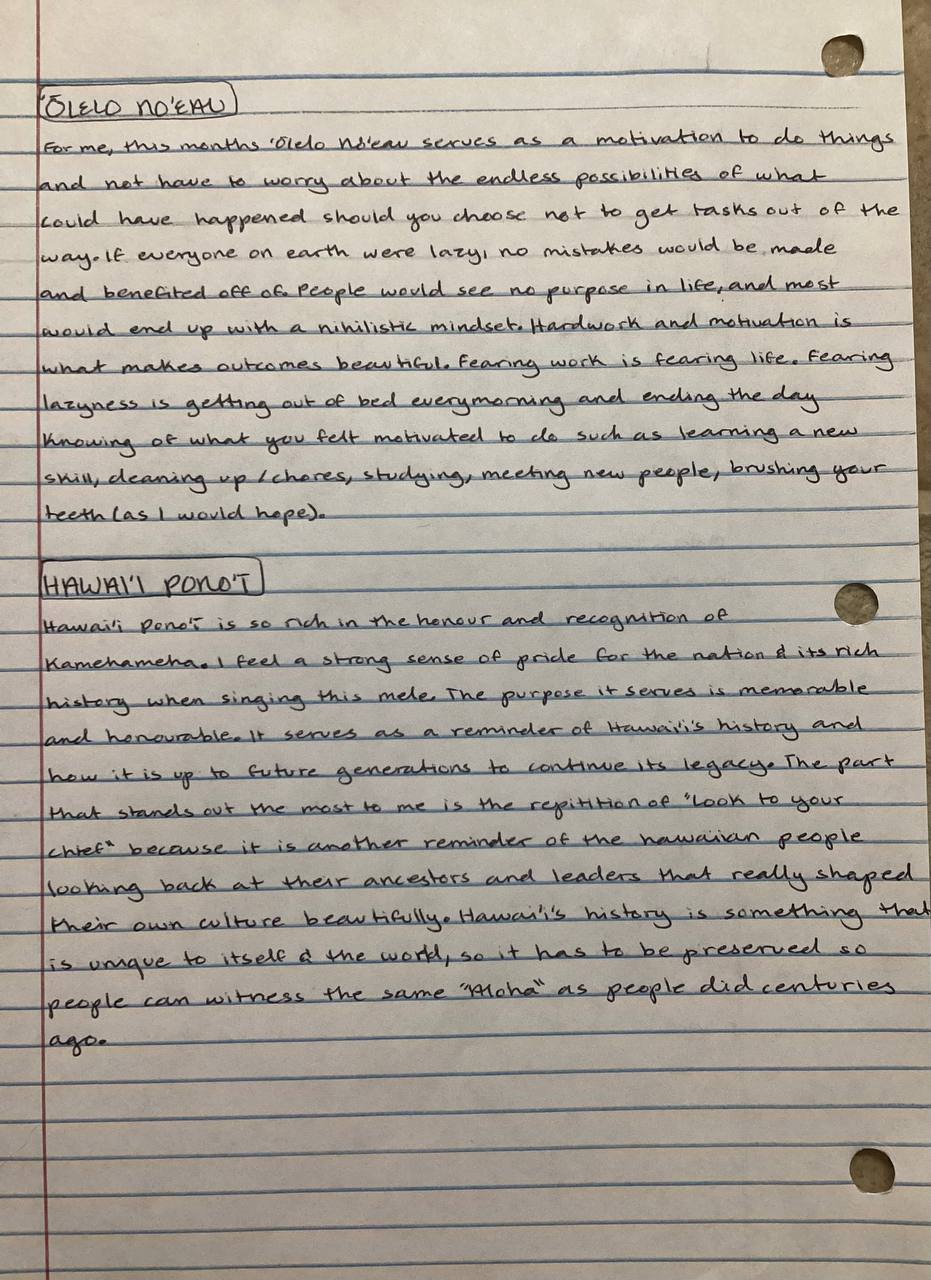 'ŌLELO NO'EAU
For me, this months 'Ōlelo No'eau serves as a motivation to do things
and not have to worry about the endless possibilities of what
could have happened should you choose not to get tasks out of the
way. If everyone on earth were lazy, no mistakes would be made
and benefited off of. People would see no purpose in life, and most
would end up with a nihilistic mindset. Hardwork and motivation is
what makes outcomes beautiful. Fearing work is fearing life. Fearing
lazyness is getting out of bed everymorning and ending the day
knowing of what you felt motivated to do such as learning a new
skill, cleaning up / chores, studying, meeting new people, brushing your
teeth (as I would hope).
HAWAI'I PONO'Ī
Hawai'i Pono'ī is so rich in the honour and recognition of
Kamehameha. I feel a strong sense of pride for the nation & its rich
history when singing this mele. The purpose it serves is memorable
and honourable. It serves as a reminder of Hawai'i's history and
how it is up to future generations to continue its legacy. The part
that stands out the most to me is the repitition of "Look to your
chief" because it is another reminder of the hawaiian people
looking back at their ancestors and leaders that really shaped
their own culture beautifully. Hawai'i's history is something that
is unique to itself & the world, so it has to be preserved so
people can witness the same "Aloha" as people did centuries
ago.